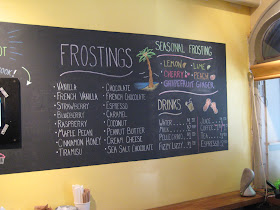 OT
OOK!
FROSTINGS
VANILLA
FRENCH VANILLA
STRAWBERRY
BLUEBERRY
RASPBERRY
MAPLE PECAN
CINNAMON HONEY
TIRAMISU
CHOCOLATE
FRENCH CHOCOLATE
ESPRESSO
CARAMEL
COCONUT
PEANUT BUTTER
CREAM CHEESE
SEA SALT CHOCOLATE
SEASONAL FROSTING
LEMON LIME
CHERRY PEACH
GRAPEFRUIT GINGER
DRINKS
WATER
MILK
PELLEGRINO
FIZZY LIZZY
JUICE
COFFEE
TEA
ESPRESSO